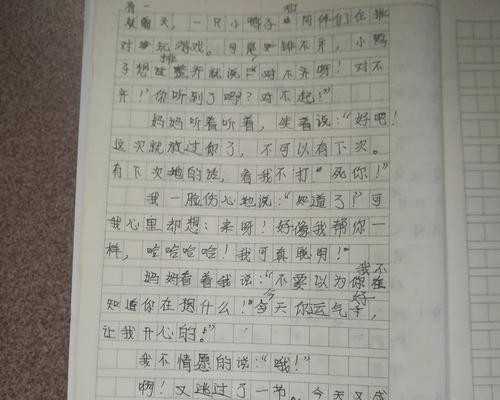 有一
天，一只小鸭子和同伴们在排
对玩游戏。可是排不齐，小鸭
子想排整齐就说：“对不齐呀！对不
齐！你听到了吗？对不起！”
妈妈听着听着，笑着说：“好吧！
这次就放过你了，不可以有下次。
有下次地的话，看我不打死你！”
我一脸伤心地说：“知道了？”可
我心里却想：来呀！好像我帮你一
样，哈哈哈哈！我可真聪明！”
妈妈看着我说：“不要以为我不
知道你在想什么！今天你运气好，
让我开心的。”
我不情愿的说：“哦！”
啊！又逃过了一节。今天又成